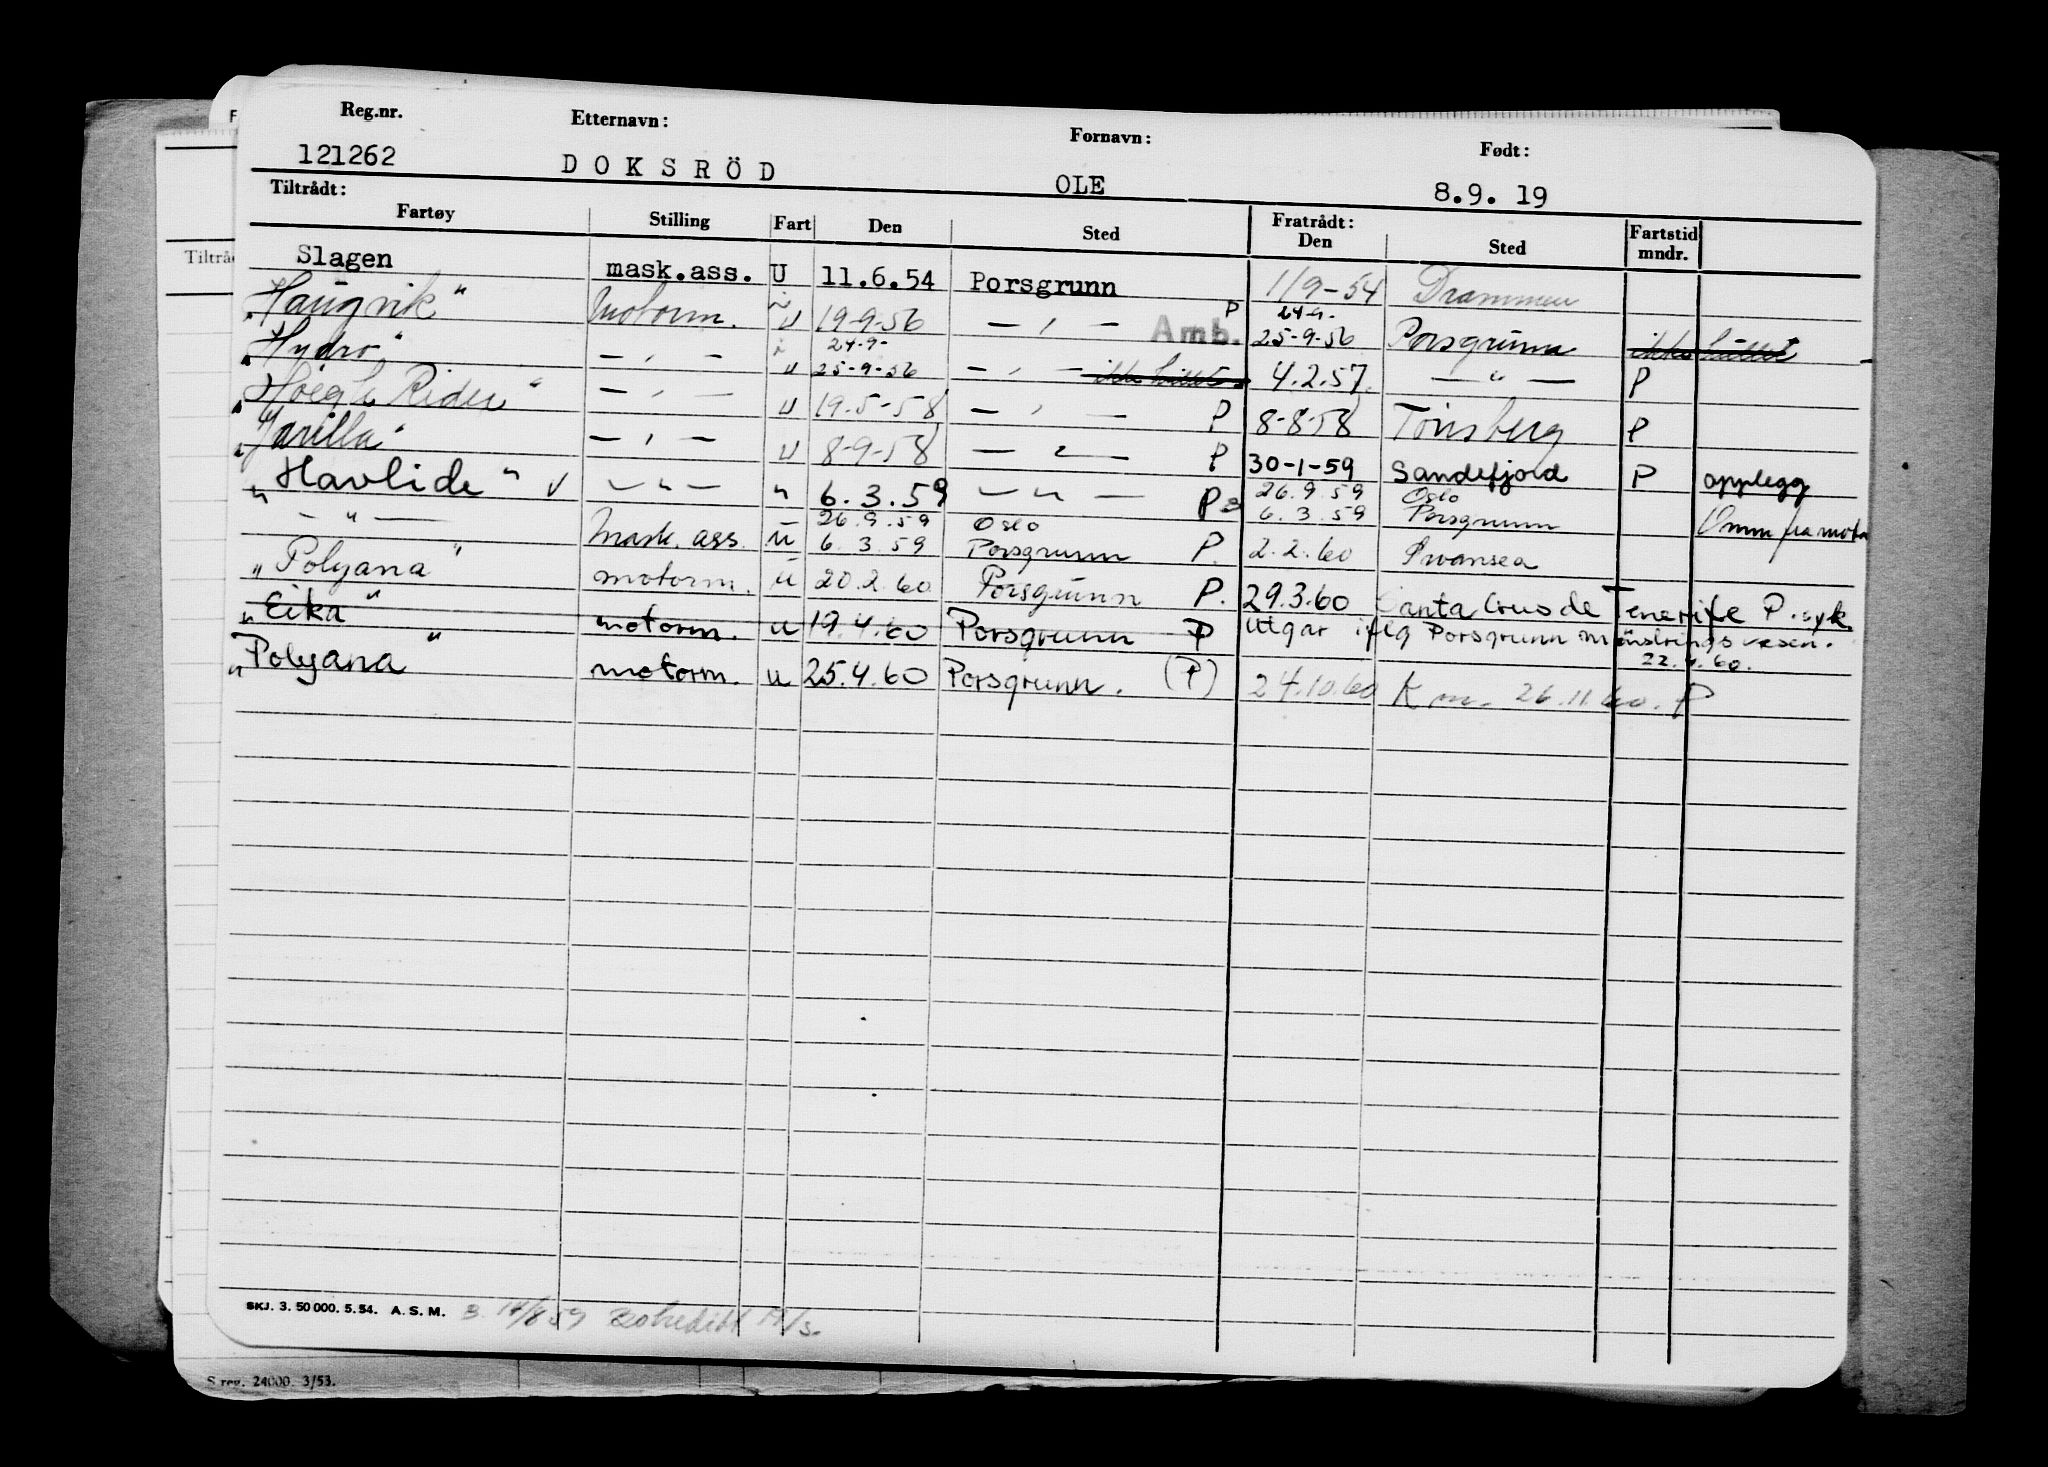 Reg.nr. Etternavn: Fornavn: Født:
121262 DOKSRÖD OLE 8.9. 19
Tiltrådt: Fratrådt:
Fartøy Stilling Fart Den Sted Den Sted Fartstid mndr.
Slagen mask.ass. U 11.6.54 Porsgrunn 1/9-54 Drammen
"Haugvik" Motorm. U 19-9-56 — " — P Amb. 24-9- 25-9-56 Porsgrunn ikke hittet
"Hydro" — " — U 24-9- 25-9-56 — " — ikke hittet 4.2.57. — " — P
"Höegh Rider" — " — U 19.5-58 — " — P 8-8-58 Tönsberg P
"Jarilla" — " — U 8-9-58 — " — P 30-1-59 Sandefjord P opplegg
"Havlide" v — " — " 6.3.59 — " — P 26.9.59 6.3.59 Oslo Porsgrunn Omm fra motor
— " — Mask. ass. u 26.9.59 6.3.59 Oslo Porsgrunn P. 2.2.60 Swansea
"Polyana" motorm. u 20.2.60 Porsgrunn P. 29.3.60 Santa Crus de Tenerife P. syk.
"Eika" motorm. u 19.4.60 Porsgrunn P Utgår iflg Porsgrunn mönstringsvesen. 22.4.60.
"Polyana" motorm. u 25.4.60 Porsgrunn. (P) 24.10.60 K m. 26.11.60. P
SKJ. 3. 50 000. 5.54. A. S. M. B. 14/8 59
S.reg. 24000. 3/53.
Tiltråd
F